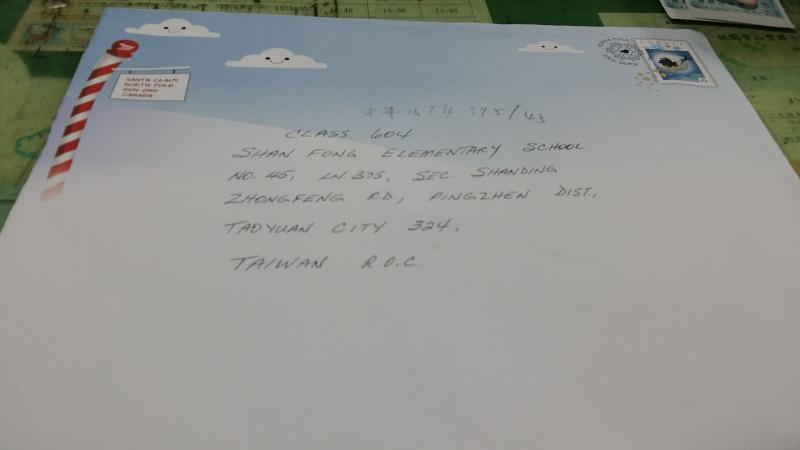 SANTA CLAUS
NORTH POLE
HOH OHO
CANADA
NORTH POLE
CLASS 604
SHAN FONG ELEMENTARY SCHOOL
NO. 45, LN. 375, SEC. SHANDING
ZHONGFENG RD., PINGZHEN DIST.,
TAOYUAN CITY 324,
TAIWAN R.O.C.